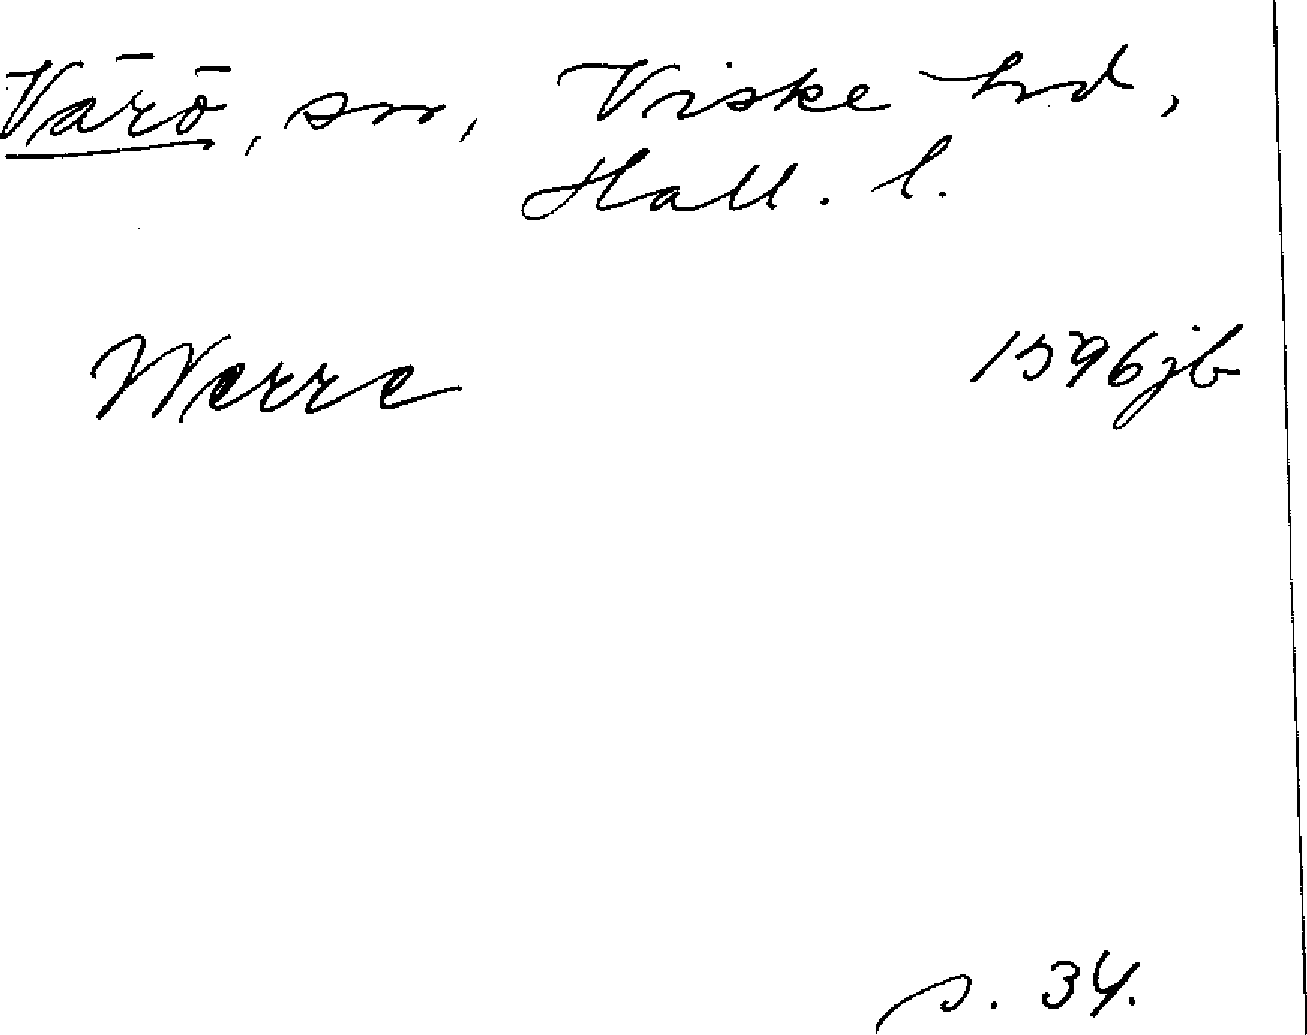 Värö, sn, Viske hd,
Hall. l.
Werre 1596jb
s. 34.